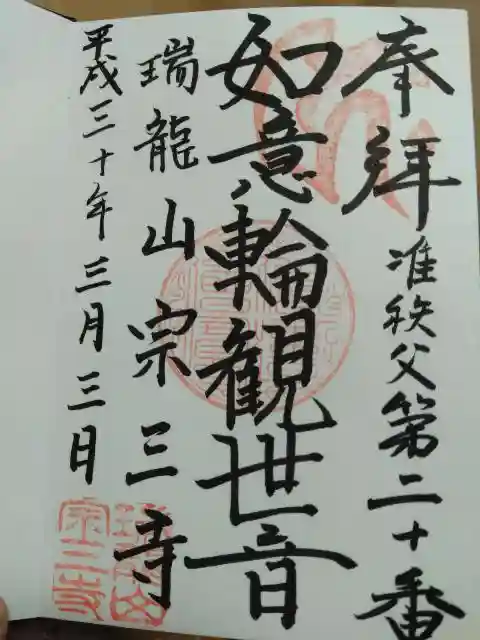 奉拜
准秩父第二十番
如意輪観世音
瑞龍山宗三寺
平成三十年三月三日